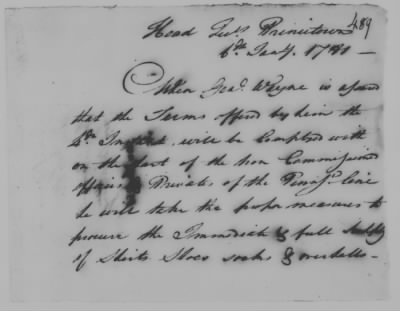 489
Head Qu.rs Princetown
6th Jany. 1781 —
When Genl. Wayne is assured
that the Terms offered by him the
4th Instant will be Complyed with
on the part of the non Commissioned
officers & Privates of the Pennsa. Line
he will take the proper measures to
procure the Immediate & full Supply
of Shirts Shoes socks & overhalls —